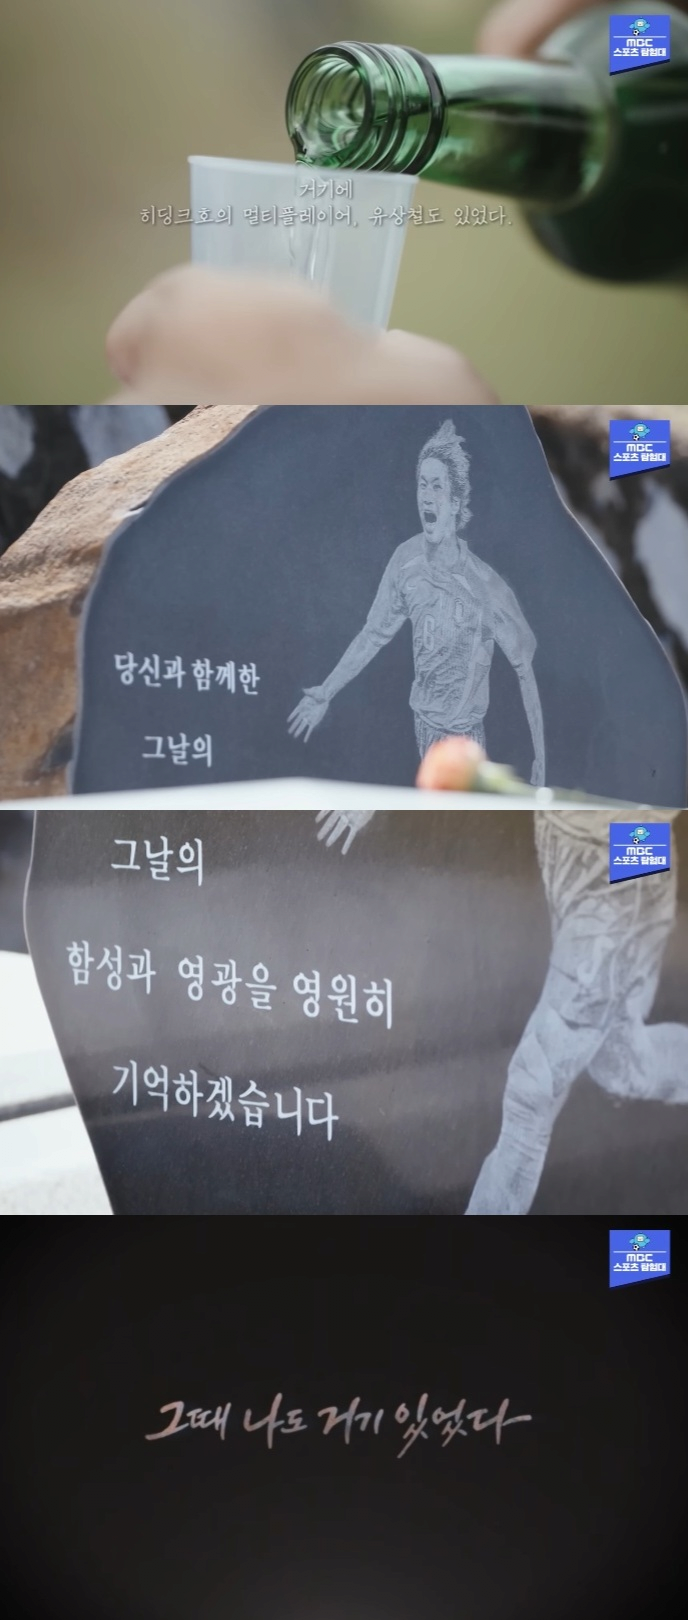 MBC
스포츠 탐험대
거기에
히딩크호의 멀티플레이어, 유상철도 있었다.
MBC
스포츠 탐험대
6
당신과 함께한
그날의
MBC
스포츠 탐험대
그날의
함성과 영광을 영원히
기억하겠습니다
MBC
스포츠 탐험대
그때 나도 거기 있었다